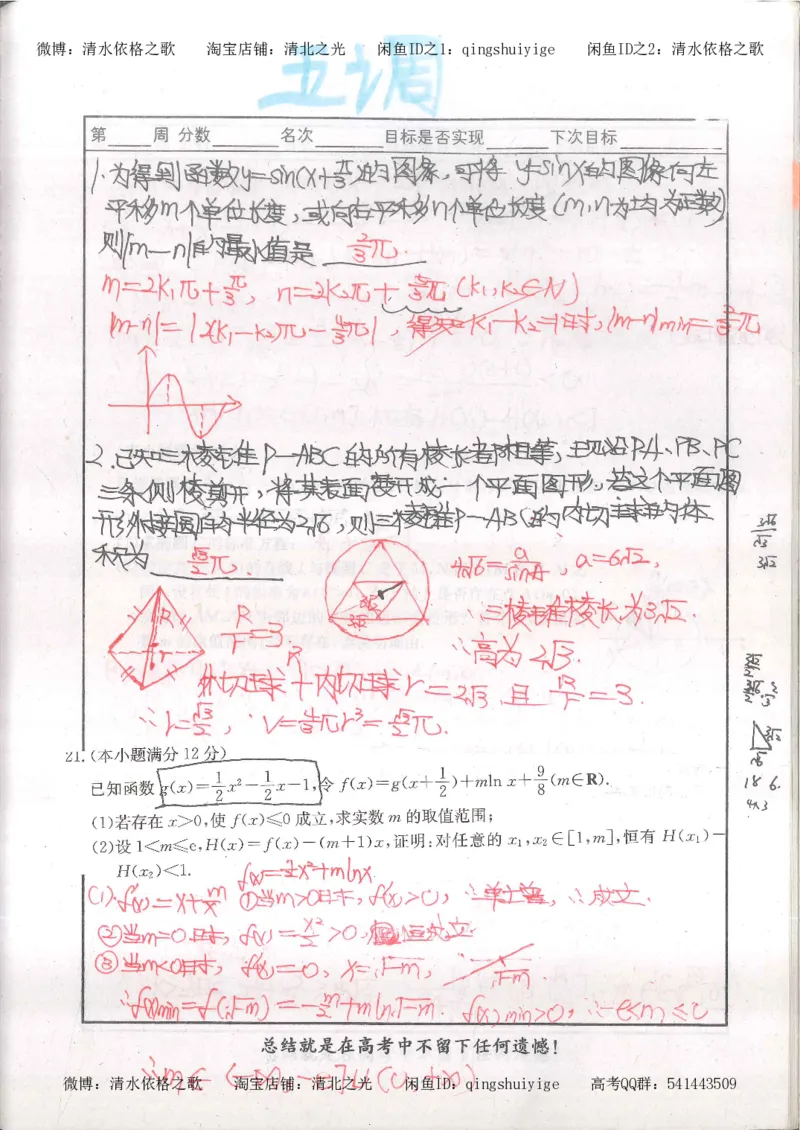 微博：清水依格之歌 淘宝店铺：清北之光 闲鱼ID之1：qingshuiyige 闲鱼ID之2：清水依格之歌
五调
第____周 分数______ 名次______ 目标是否实现______ 下次目标______
1.为得到函数y=sin(x+π/3)的图像,可将 y=sinx的图像向左
平移m个单位长度,或向右平移n个单位长度(m,n均为正数)
则|m—n|的最小值是 2/3π
m=2k₁π+π/3, n=2k₂π+5/3π(k₁,k₂∈N)
|m-n|=|2(k₁-k₂)π-4/3π|, k₁-k₂=1时,|m-n|min=2/3π
2.已知三棱锥P—ABC的所有棱长都相等,现沿PA、PB、PC
三条侧棱剪开,将其表面展开成一个平面图形,若这个平面图
形外接圆的半径为2√6,则三棱锥P—ABC的内切球的体
积为 √3/2π.
4√6=a/sinA, a=6√2,
∴三棱锥棱长为3√2
R/r=3
∴高为2√3.
外切球+内切球r=2√3 且 R/r=3
∴r=√3/2, ∴V=4/3πr³=√3/2π.
21.(本小题满分12分)
已知函数g(x)=1/2x²-1/2x-1,令f(x)=g(x+1/2)+mln x+9/8(m∈R).
(1)若存在x>0,使f(x)≤0成立,求实数m的取值范围;
(2)设1<m≤e,H(x)=f(x)-(m+1)x,证明:对任意的x₁,x₂∈[1,m],恒有H(x₁)-
H(x₂)<1.
f(x)=1/2x²+mlnx.
(1).f'(x)=x+m/x ①当m>0时,f'(x)>0, ∴单增, ∴成立.
②当m=0时,f(x)=x²/2>0,恒成立
③当m<0时,f'(x)=0, x=√-m,
∴f(x)min=f(√-m)=-m/2+mln√-m. f(x)min>0, ∴-e<m≤0
总结就是在高考中不留下任何遗憾!
∴m∈(-∞,-e]∪(0,+∞)
微博：清水依格之歌 淘宝店铺：清北之光 闲鱼ID：qingshuiyige 高考QQ群：541443509